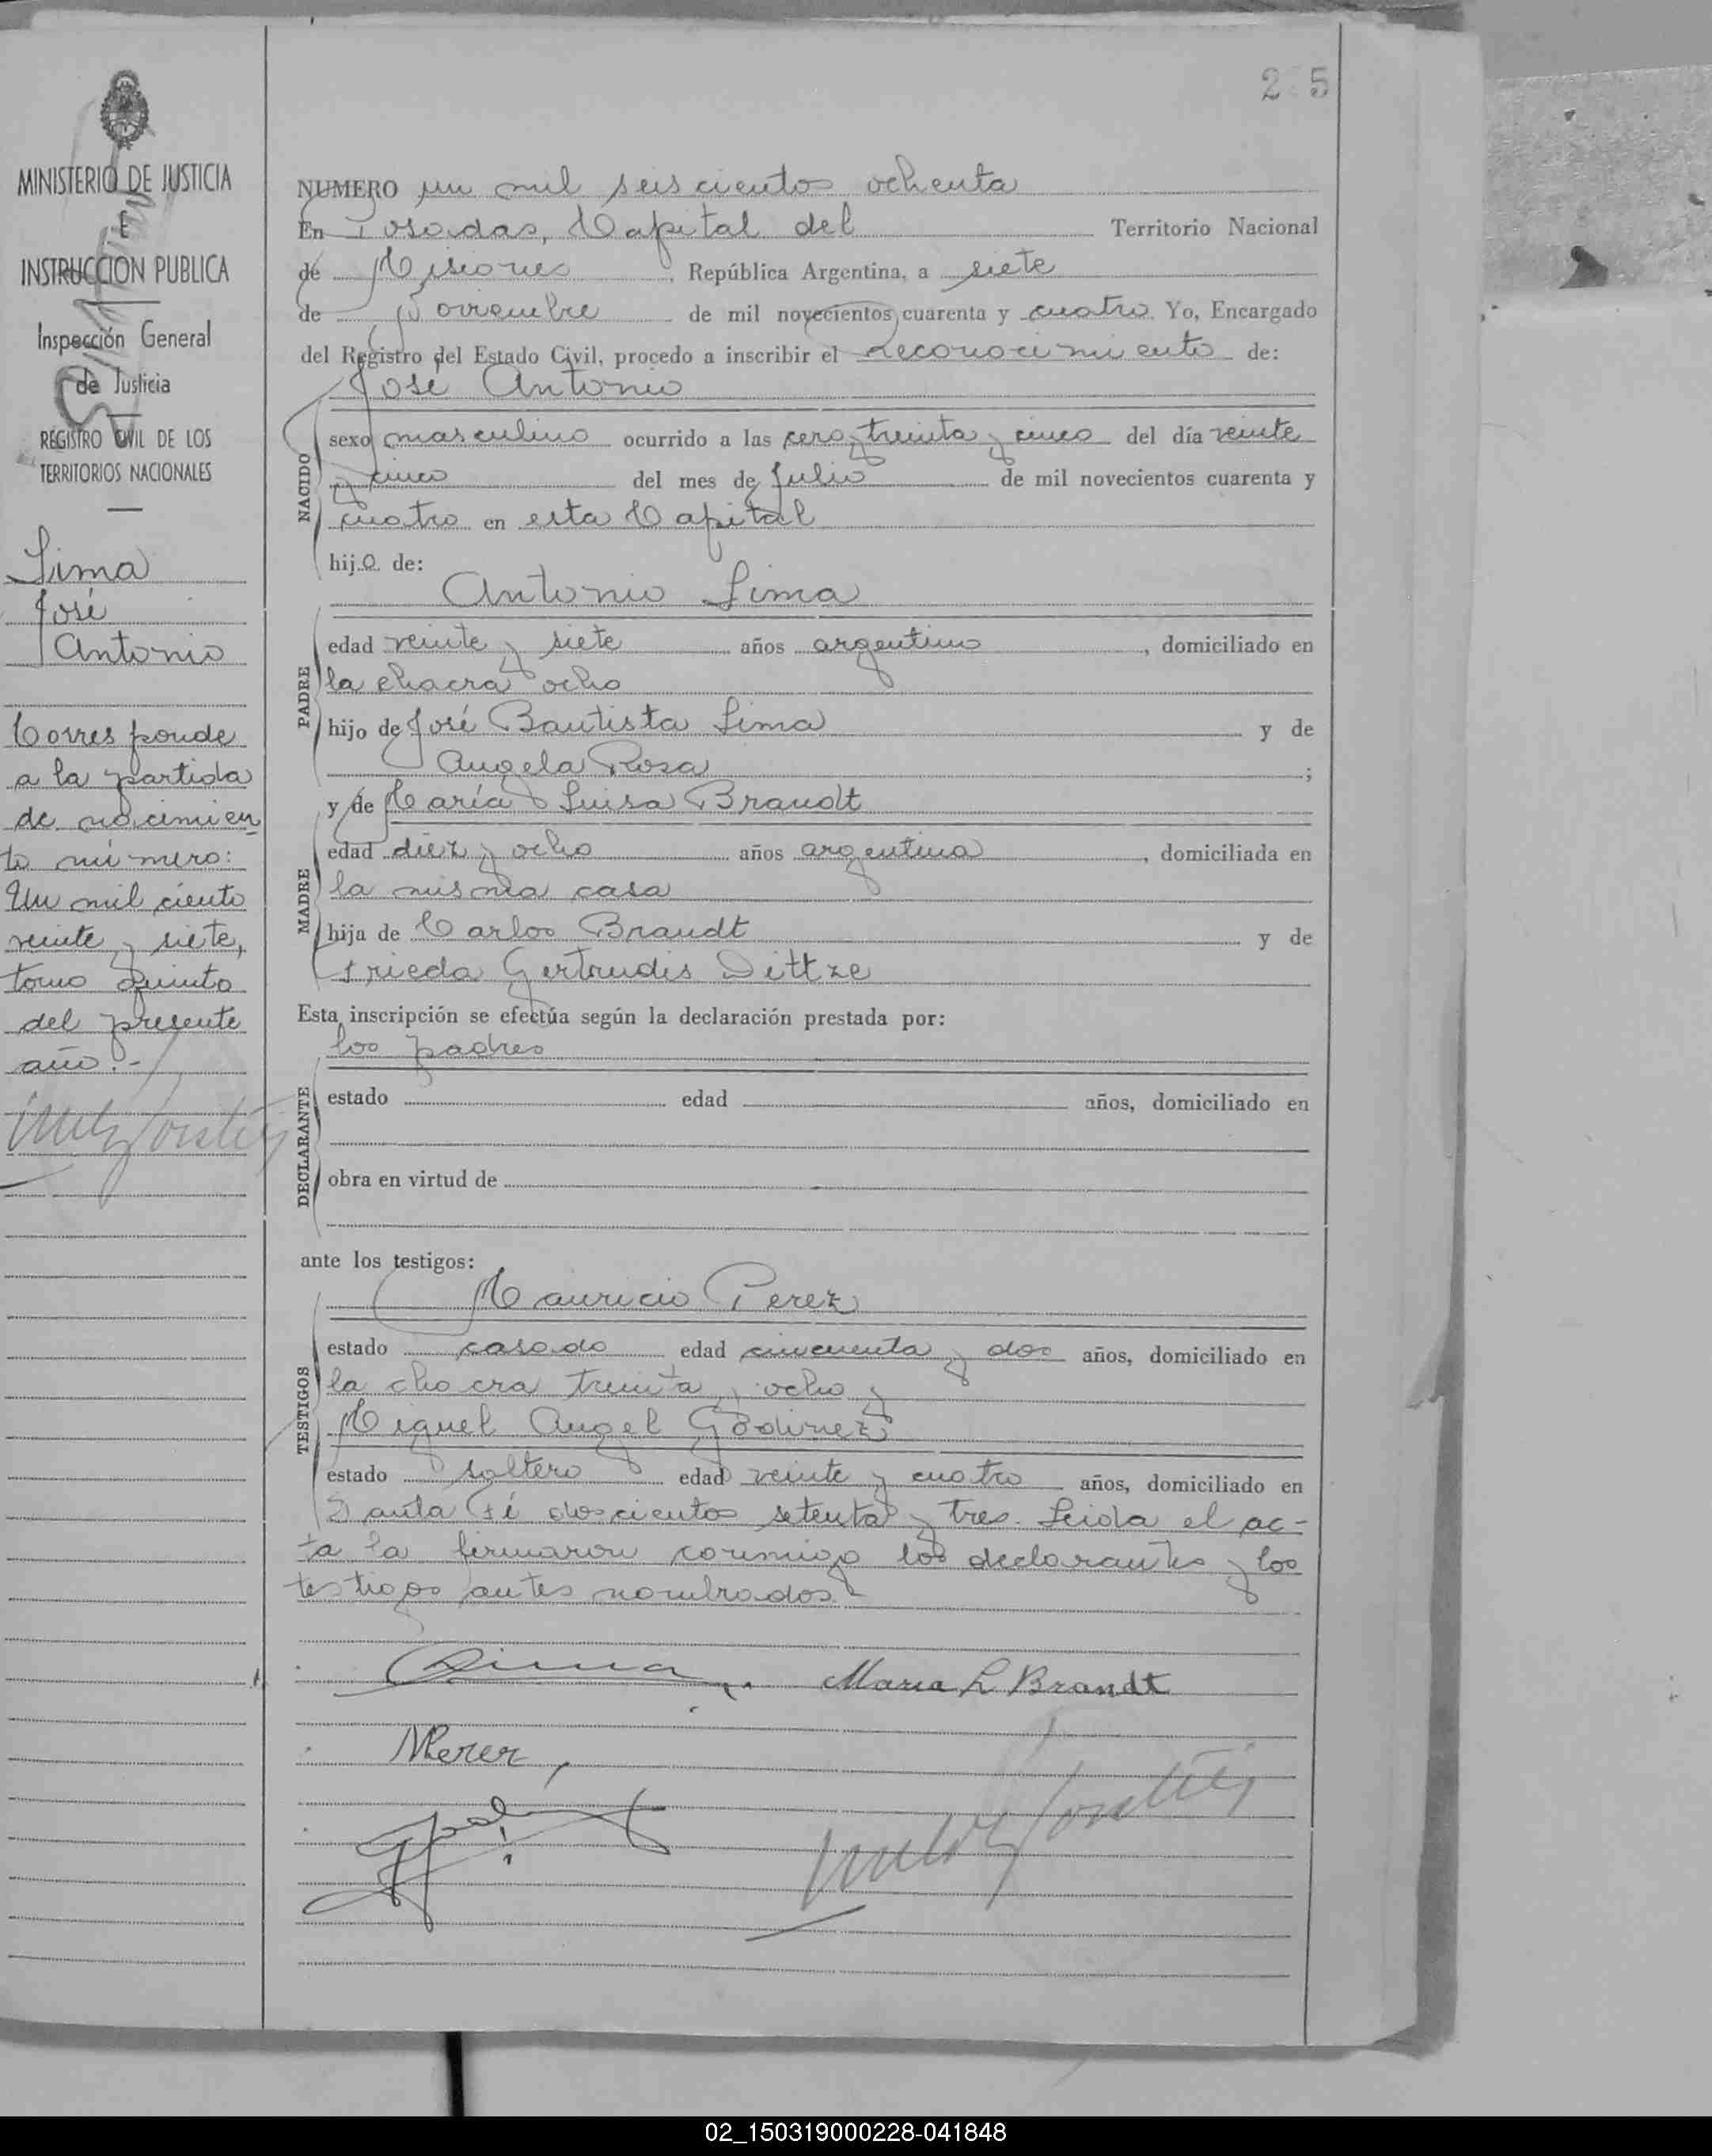 MINISTERIO DE JUSTICIA
E
INSTRUCCION PUBLICA
Inspección General
de Justicia
REGISTRO CIVIL DE LOS
TERRITORIOS NACIONALES
Lima
José
Antonio
Corresponde
a la partida
de nacimien
to número:
Un mil ciento
veinte y siete,
tomo Quinto
del presente
año.-
2 5
NUMERO un mil seiscientos ochenta
En Posadas, Capital del Territorio Nacional
de Misiones, República Argentina, a siete
de Noviembre de mil novecientos cuarenta y cuatro. Yo, Encargado
del Registro del Estado Civil, procedo a inscribir el reconocimiento de:
José Antonio
NACIDO
sexo masculino ocurrido a las cero y treinta y cinco del día veinte
y cinco del mes de Julio de mil novecientos cuarenta y
cuatro en esta Capital
hijo de:
Antonio Lima
PADRE
edad veinte y siete años argentino, domiciliado en
la chacra ocho
hijo de José Bautista Lima y de
Angela Rosa;
y de María Luisa Brandt
MADRE
edad diez y ocho años argentina, domiciliada en
la misma casa
hija de Carlos Brandt y de
Frieda Gertrudis Dittze
Esta inscripción se efectúa según la declaración prestada por:
los padres
DECLARANTE
estado edad años, domiciliado en
obra en virtud de
ante los testigos:
Mauricio Perez
TESTIGOS
estado casado edad cincuenta y dos años, domiciliado en
la chacra treinta y ocho y
Miguel Angel Godinez
estado soltero edad veinte y cuatro años, domiciliado en
Santa Fé doscientos setenta y tres. Leida el ac-
ta la firmaron conmigo los declarantes y los
testigos antes nombrados.-
Lima
Maria L Brandt
MPerez
02_150319000228-041848